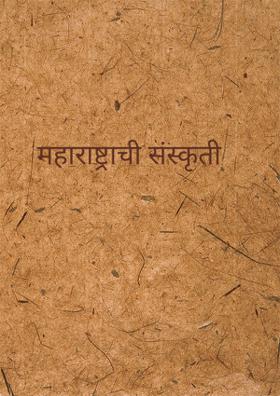 महाराष्ट्राची संस्कृती